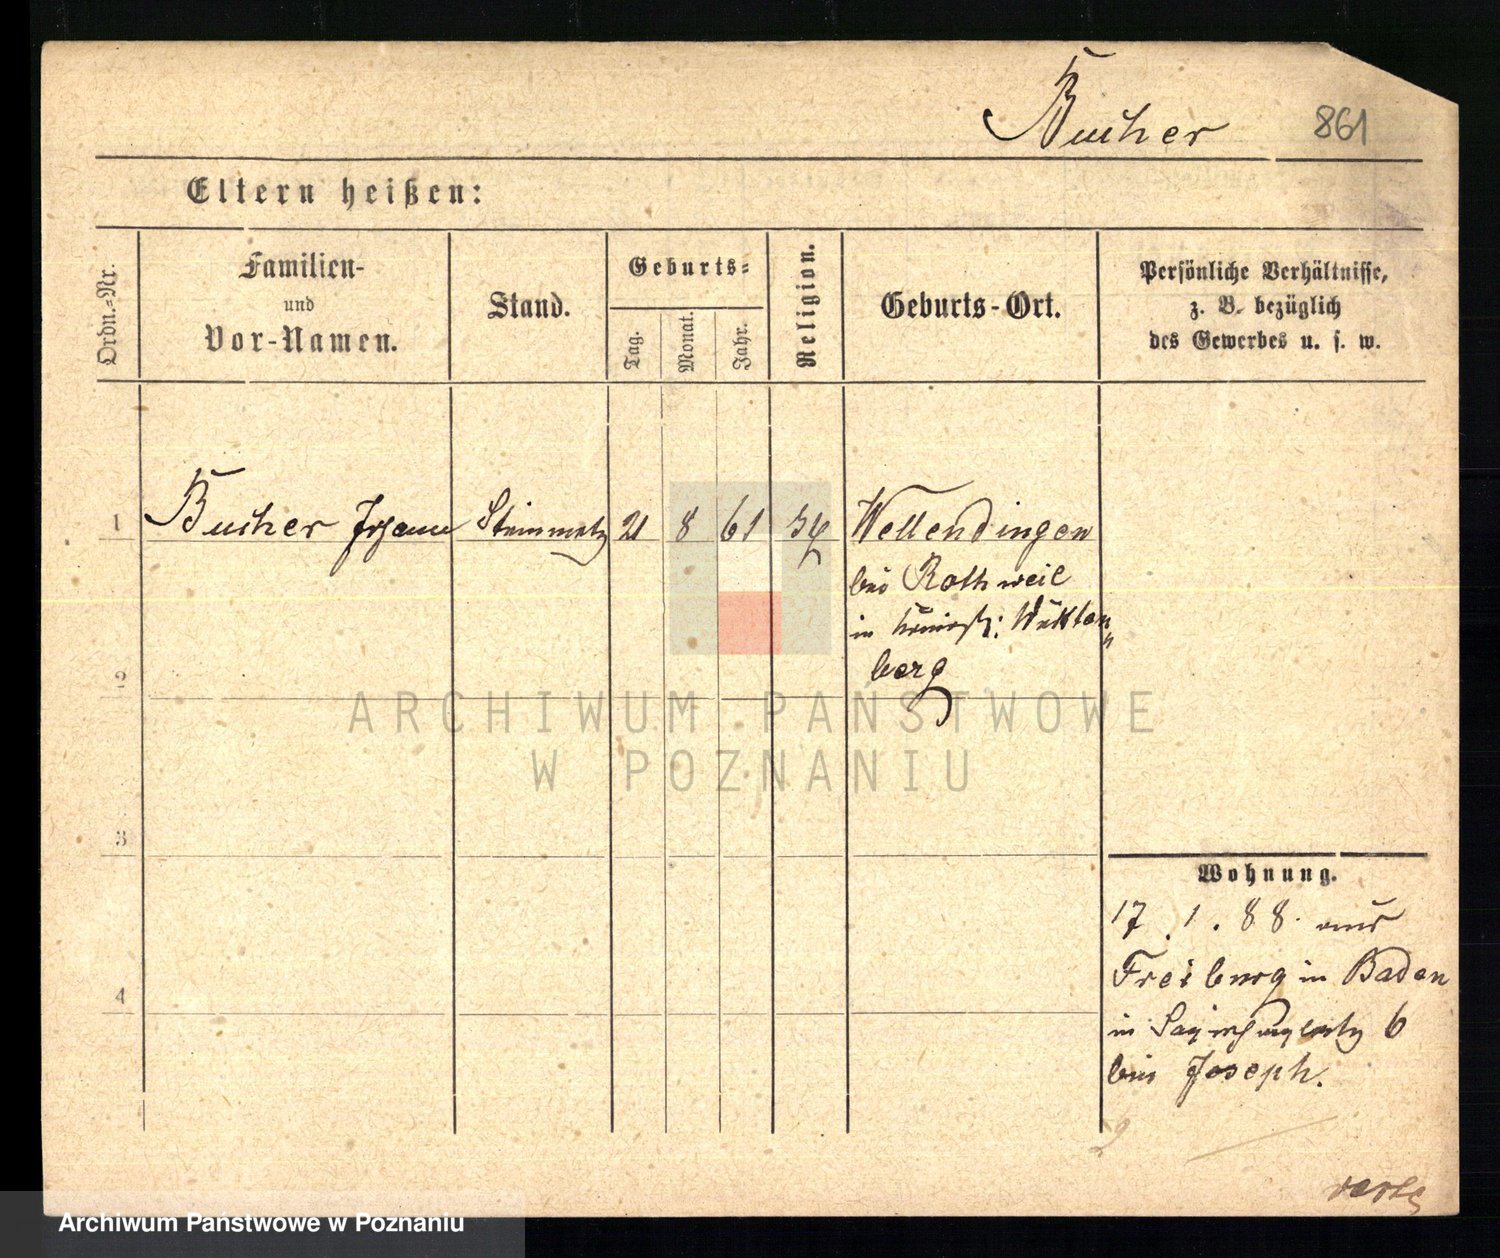 Bucher 861
Eltern heißen:
Ordn.-Nr.
Familien-
und
Vor-Namen.
Stand.
Geburts-
Tag.
Monat.
Jahr.
Religion.
Geburts-Ort.
Persönliche Verhältnisse,
z. B. bezüglich
des Gewerbes u. s. w.
1 Bucher Johann Steinmetz 21 8 61 Wellendingen
bei Rothweil
in Württem
berg
2
3
4
Wohnung.
17. 1. 88. aus
Freiburg in Baden
in 6
bei Joseph.
ARCHIWUM PAŃSTWOWE
W POZNANIU
Archiwum Państwowe w Poznaniu